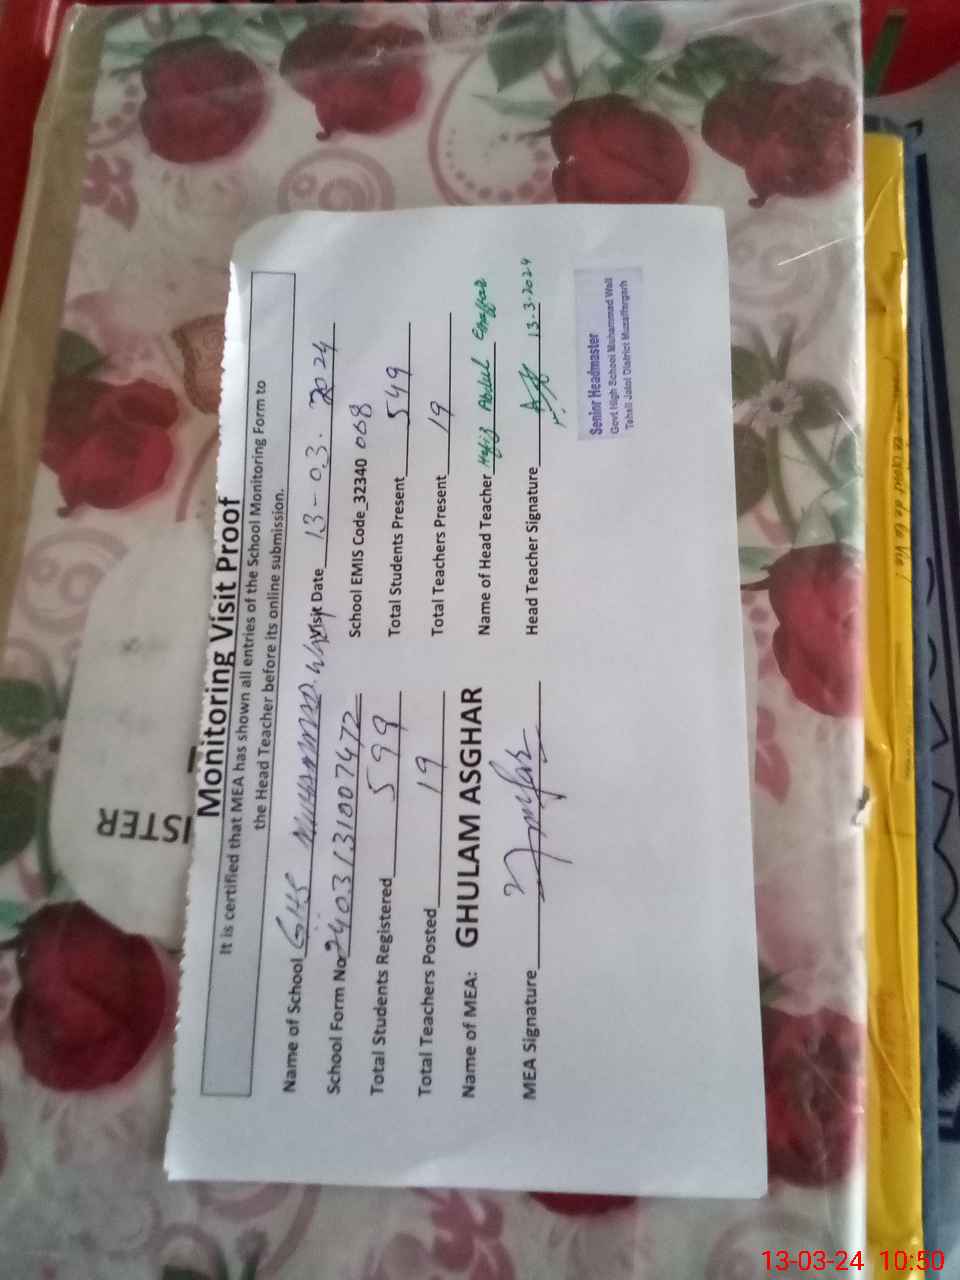 Monitoring Visit Proof
It is certified that MEA has shown all entries of the School Monitoring Form to
the Head Teacher before its online submission.
Name of School GHS MUHAMMAD. WALI Visit Date 13-03.2024
School Form No 2403131007472 School EMIS Code_32340 068
Total Students Registered 599 Total Students Present 549
Total Teachers Posted 19 Total Teachers Present 19
Name of MEA: GHULAM ASGHAR Name of Head Teacher Hafiz Abdul
MEA Signature Head Teacher Signature 13-3-2024
Senior Headmaster
Govt High School Muhammad Wali
Tehsil Jatoi District Muzaffargarh
ISTER
13-03-24 10:50